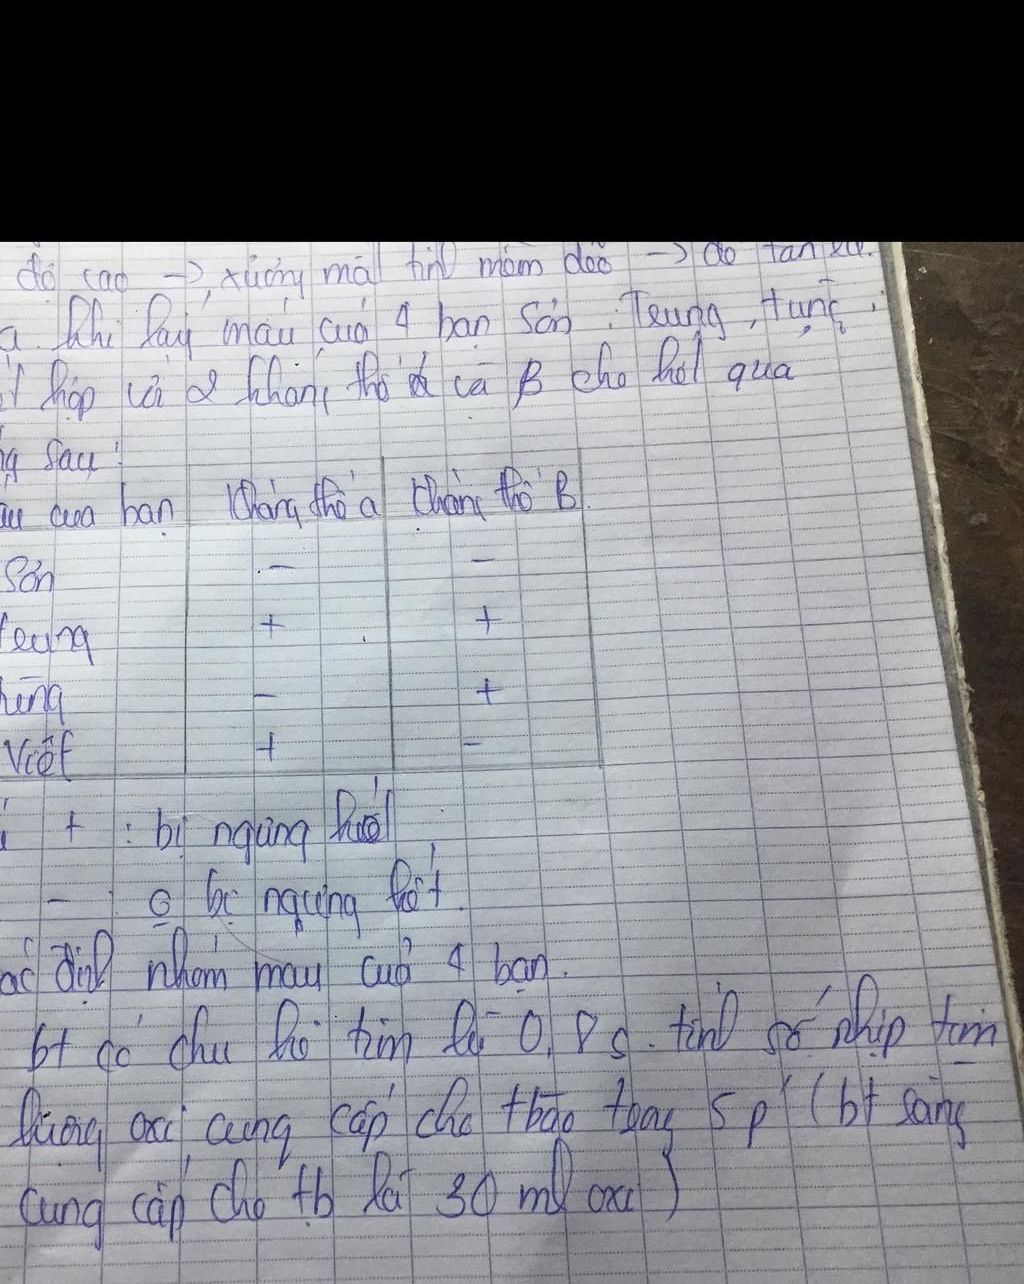 độ cao -> xương mất tính mềm dẻo -> do
a. khi lấy máu của 4 bạn Sơn, Trung,
hợp với 2 kháng thể α và β cho kết quả
sau:
của bạn kháng thể α kháng thể β
Sơn - -
Trung + +
- +
Việt + -
+ : bị ngưng kết
- : 0 bị ngưng kết.
định nhóm máu của 4 bạn.
bt có chu kì tim là 0,8 s. tính số nhịp tim
lượng oxi cung cấp cho tbào trong 5 p' (bt
cung cấp cho tb là 30 ml oxi)